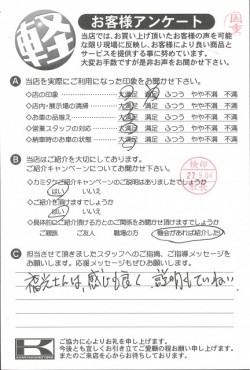 軽
お客様アンケート
当店では、お買い上げ頂いたお客様の声を可能
な限り現場に反映し、お客様により良い商品と
サービスを提供する事に努めています。
大変お手数ですが是非お声をお聞かせ下さい。
A 当店を実際にご利用になった印象をお聞かせ下さい。
◇店の印象 大満足 満足 ふつう やや不満 不満
◇店内・展示場の清掃 大満足 満足 ふつう やや不満 不満
◇お車の品揃え 大満足 満足 ふつう やや不満 不満
◇営業スタッフの対応 大満足 満足 ふつう やや不満 不満
◇納車時のお車の状態 大満足 満足 ふつう やや不満 不満
B 当店はご紹介を大切にしております。
ご紹介キャンペーンについてお聞かせ下さい。
◇カミタケご紹介キャンペーンのご説明はありましたでしょうか
はい いいえ
◇ご紹介を頂けますでしょうか
はい いいえ
◇具体的にご紹介頂ける方とのご関係をお聞かせ頂けますでしょうか
ご親族 ご友人 職場の方 機会があれば紹介したい
検印
27.9.04
C 担当させて頂きましたスタッフへのご指摘、ご指導メッセージを
お願いします。応援メッセージもぜひお願いします。
さんは、感じも良く 説明もていねい
K
ご協力に心よりお礼を申し上げます。
今後とも宜しくお引き立てご愛顧の程お願い申し上げます。
またのご来店を心からお待ちしております。